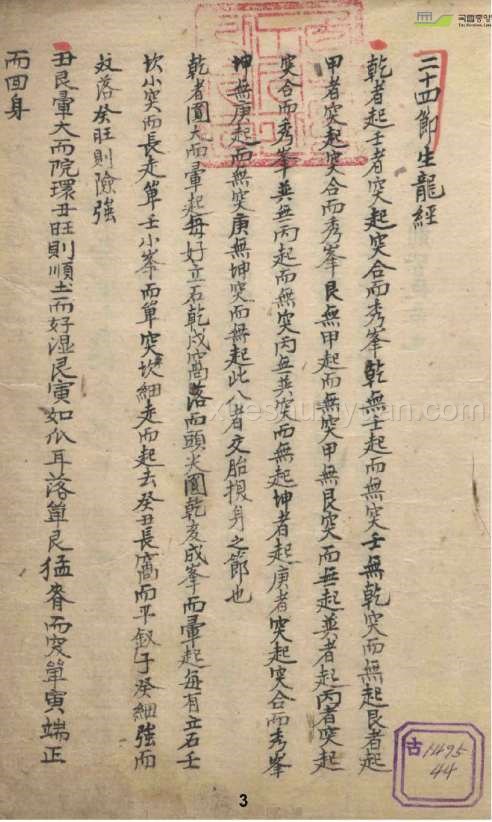 二十四節生龍經
乾者起壬者突起突合而秀峯乾無壬起而無突壬無乾突而無起艮者起
甲者突起突合而秀峯艮無甲起而無突甲無艮突而無起巽者起丙者突起
突合而秀峯巽無丙起而無突丙無巽突而無起坤者起庚者突起突合而秀峯
坤無庚起而無突庚無坤突而無起此八者交胎損身之節也
乾者圓大而暈起每好立石乾戌窩落而頭大圓乾亥成峯而暈起每有立石壬
坎小突而長走單壬小峯而單突坎細走而起去癸丑長窩而平釵子癸細強而
奴落癸旺則險強
丑艮暈大而院環丑旺則順土而好湿艮寅如爪耳落單艮猛脊而突單寅端正
而回身
國國立中央
xueshuiyuan.com
古1495
44
3